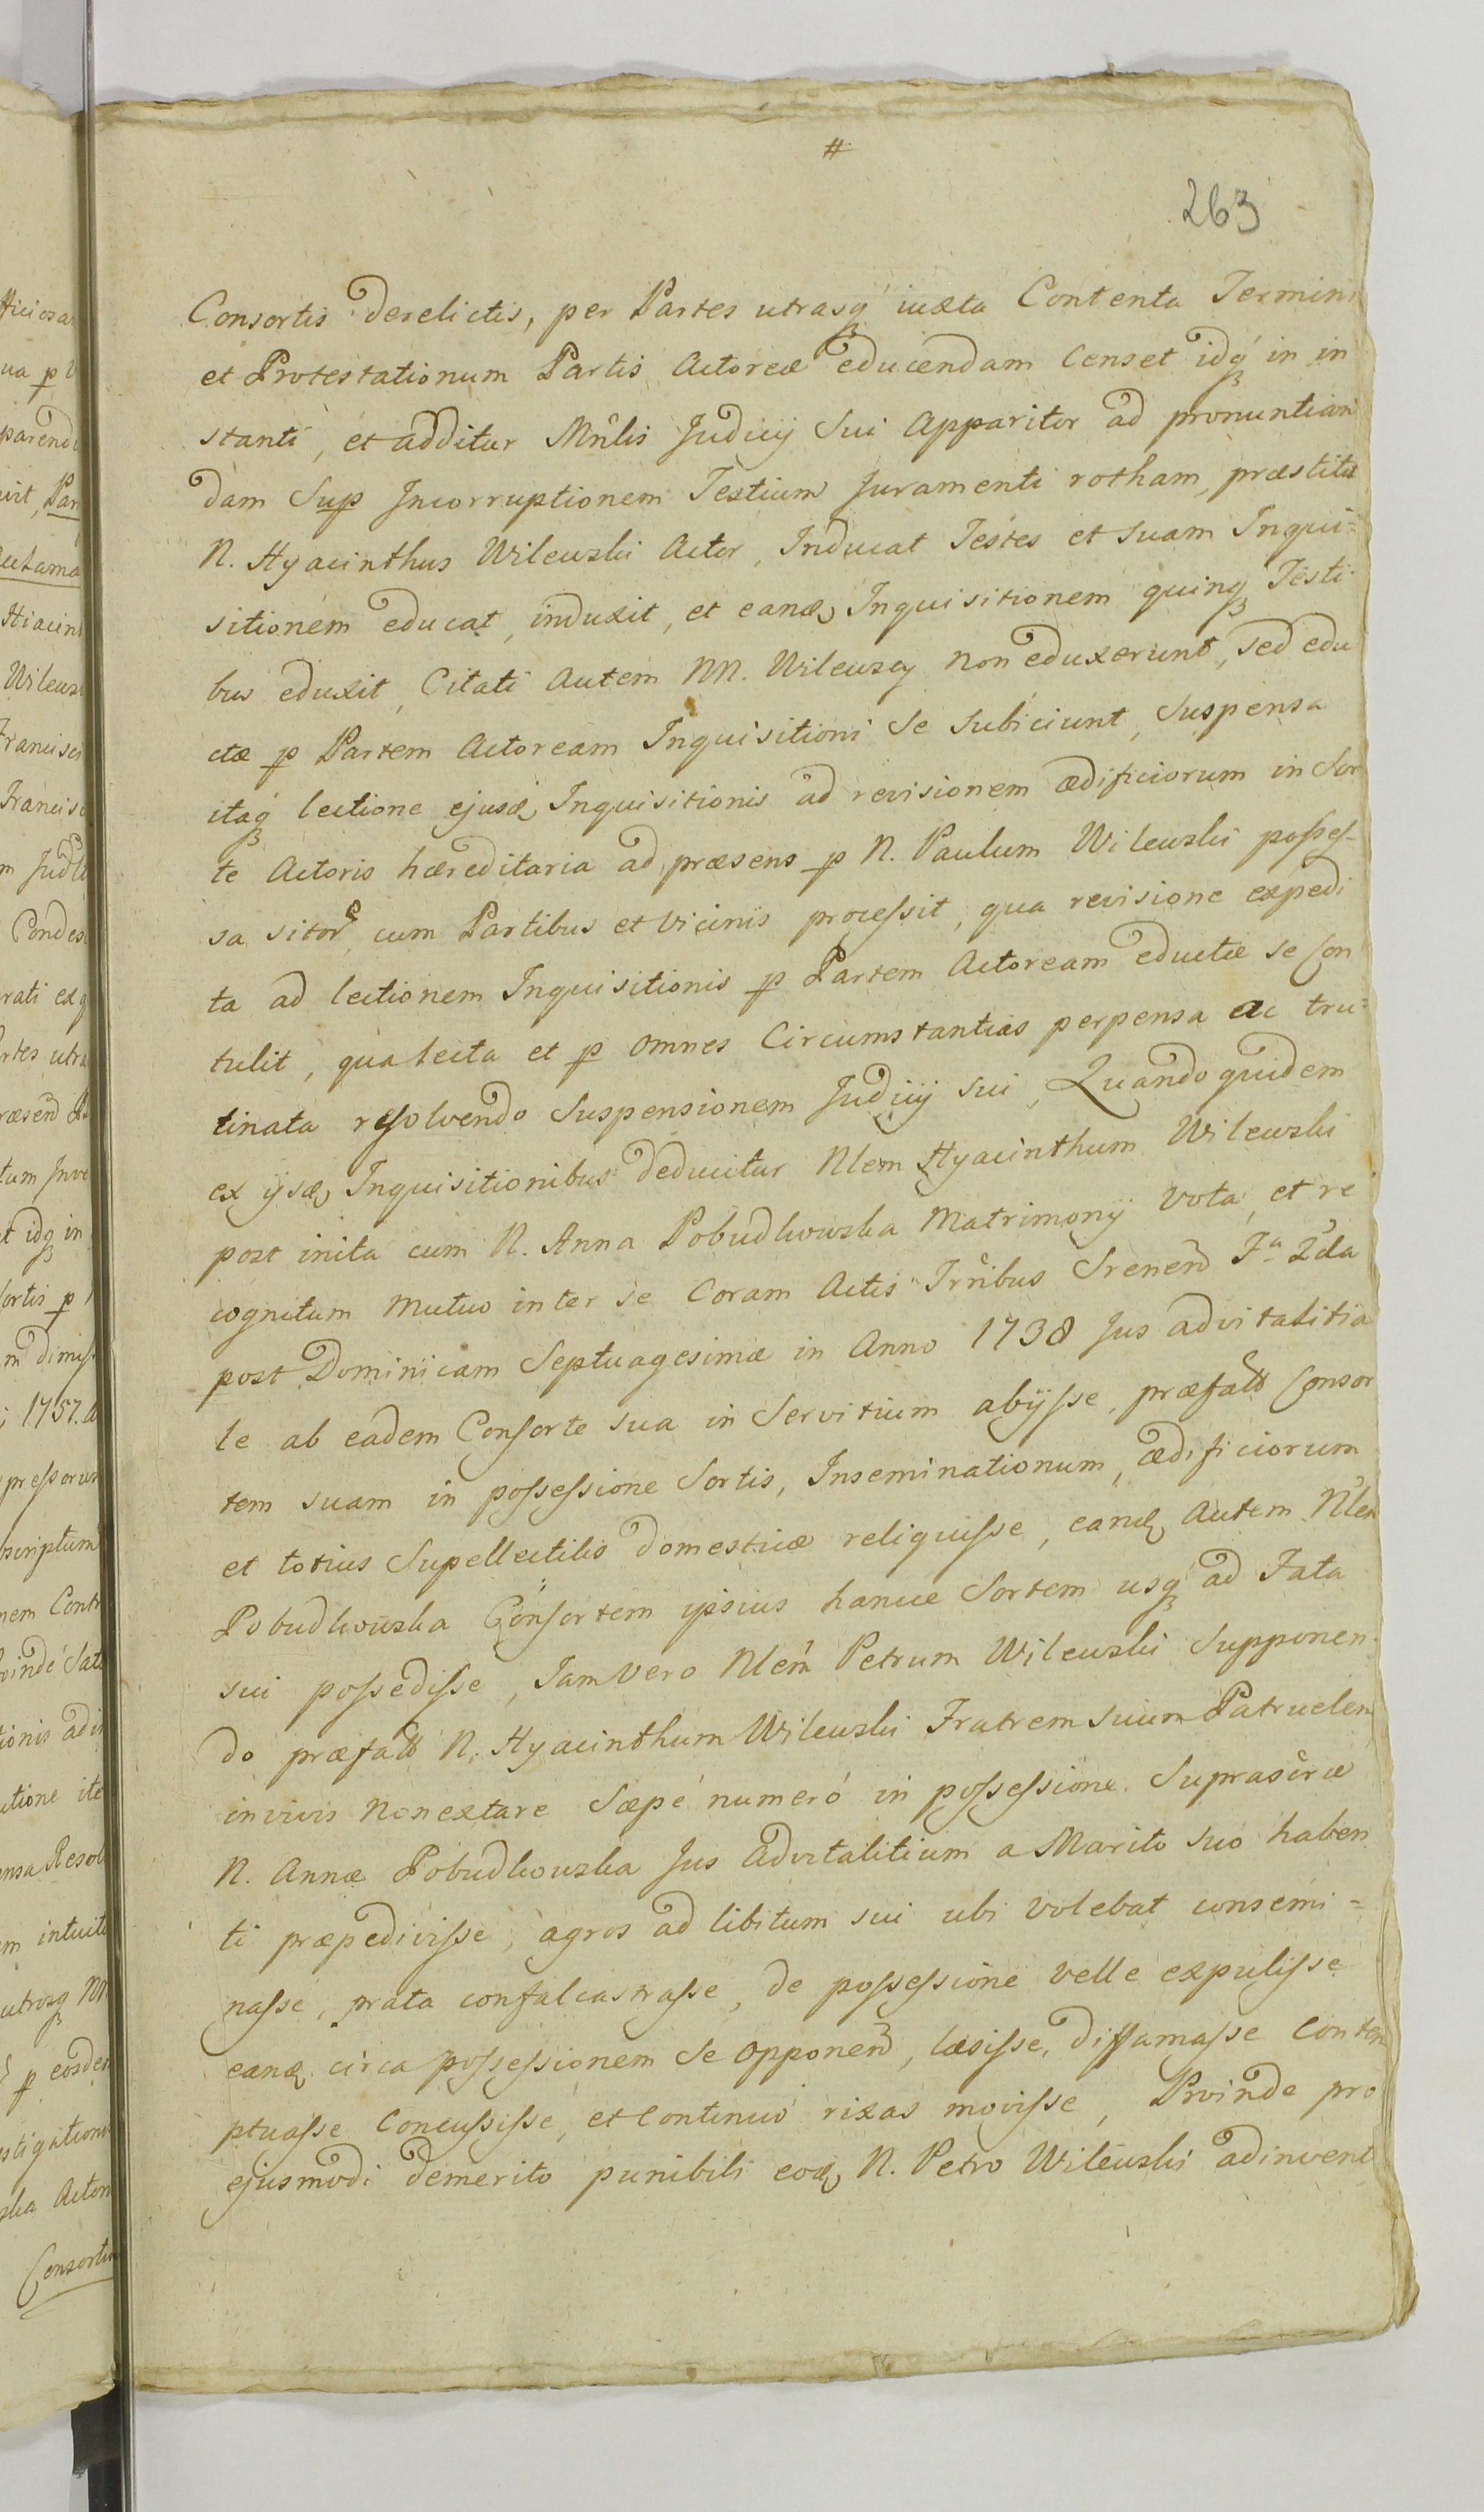 #
263
Consortis derelictis, per Partes utrasq́ iuxta Contenta Termini
et Protestationum Partis Actoreæ educendam Censet idq́ in in
stanti, et additur Mnlis Judicij Sui Apparitor ad pronuntian
dam Sup Incorruptionem Testium Juramenti rotham, præstita
N. Hyacinthus Wilewski Actor, Inducat Testes et suam Inqui=
sitionem educat, induxit, et eand Inquisitionem quinq Testi
bus eduxit, Citati Autem NN. Wilewscy non eduxerunt, sed edu
ctæ p Partem Actoream Inquisitioni Se Subiciunt, Suspensa
itaq́ lectione ejusd Inquisitionis ad revisionem ædificiorum in Sor
te Actoris hæreditaria ad præsens p N. Paulum Wilewski posses-
sa sitor cum Partibus et Vicinis processit, qua revisione expedi
ta ad lectionem Inquisitionis p Partem Actoream eductæ se Con
tulit, qua lecta et p omnes Circumstantias perpensa ac tru=
tinata resolvendo Suspensionem Judicij sui, Quandoquidem
ex ijsd Inquisitionibus deducitur Nlem Hyacinthum Wilewski
post inita cum N. Anna Pobudkowska Matrimonij vota, et re
cognitum mutuo inter se Coram Actis Trribus Srenen Fa 2da
post Dominicam Septuagesimæ in Anno 1738 Jus advitalitia
le ab eadem Consorte sua in Servitium abijsse, præfatt Consor
tem suam in possessione Sortis, Inseminationum, ædificiorum
et totius Supellectilis domesticæ reliquisse, eand Autem Nlem
Pobudkowska Consortem ipsius hancce Sortem usq́ ad Fata
sui possedisse, Jam Vero Nlem Petrum Wilewski Supponen
do præfatt N. Hyacinthum Wilewski Fratrem suum Patruelem
in vivis non extare Sæpe numero in possessione Suprascrtæ
N. Annæ Pobudkowska Jus advitalitium a Marito suo haben
ti præpedivisse, agros ad libitum sui ubi volebat consemi=
nasse, prata confalcastrasse, de possessione velle expulisse
eand circa possessionem se opponen, læsisse, diffamasse Contem
ptuasse Concussisse, et Continuo rixas movisse, Proinde pro
ejusmodi demerito punibili eod N. Petro Wilewski adinvent